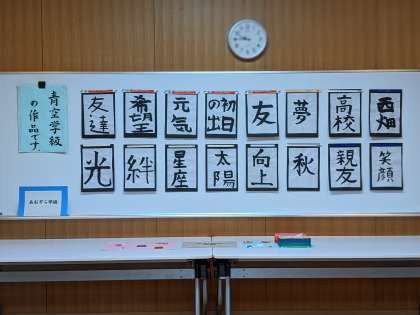 青空学級
の作品です。
あおぞら学級
友達
希望
元気
初日
の出
友
夢
高校
西畑
光
絆
星座
太陽
向上
秋
親友
笑顔